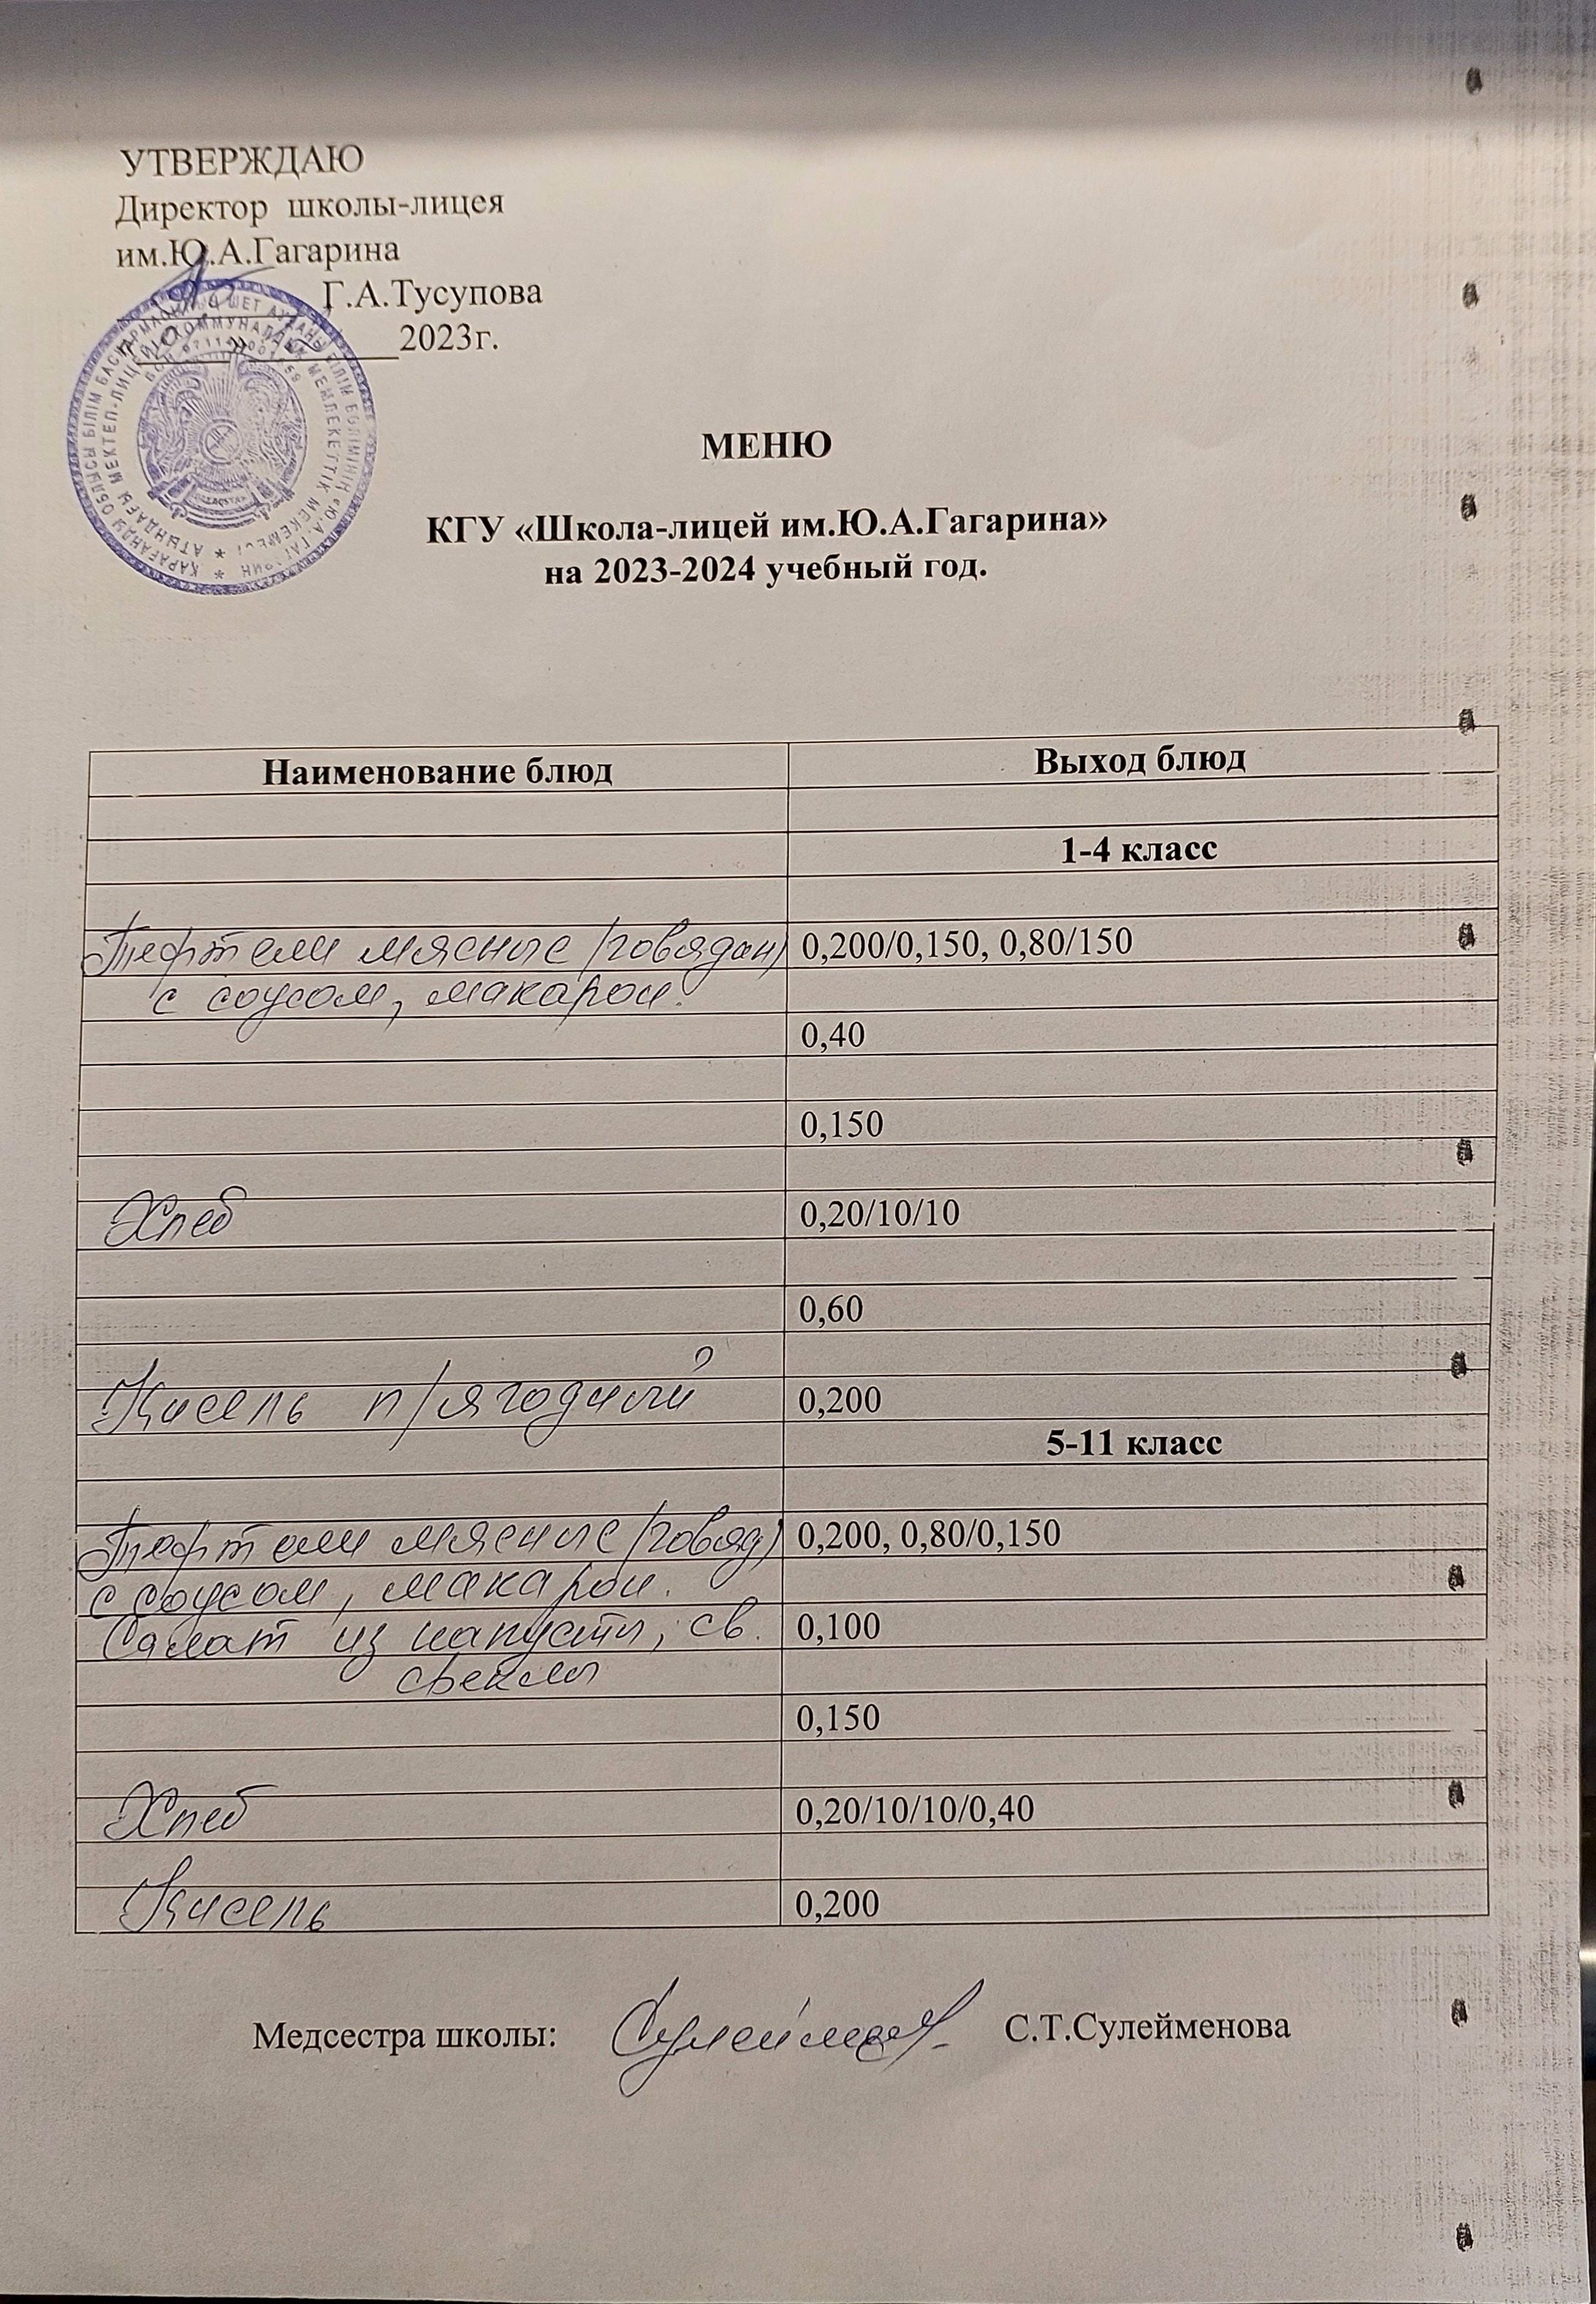 УТВЕРЖДАЮ
Директор школы-лицея
им.Ю.А.Гагарина
Г.А.Тусупова
2023г.
МЕНЮ
КГУ «Школа-лицей им.Ю.А.Гагарина»
на 2023-2024 учебный год.
Наименование блюд Выход блюд
1-4 класс
Тефтели мясные (говядин) 0,200/0,150, 0,80/150
с соусом, макарон.
0,40
0,150
Хлеб 0,20/10/10
0,60
Кисель п/ягодный 0,200
5-11 класс
Тефтели мясные (говяд) 0,200, 0,80/0,150
с соусом, макарон.
Салат из капусты, св. 0,100
свеклы
0,150
Хлеб 0,20/10/10/0,40
Кисель 0,200
Медсестра школы: С.Т.Сулейменова